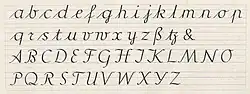 a b c d e f g h i j k l m n o p
q r s t u v w x y z ß tz &
A B C D E F G H I J K L M N O
P Q R S T U V W X Y Z